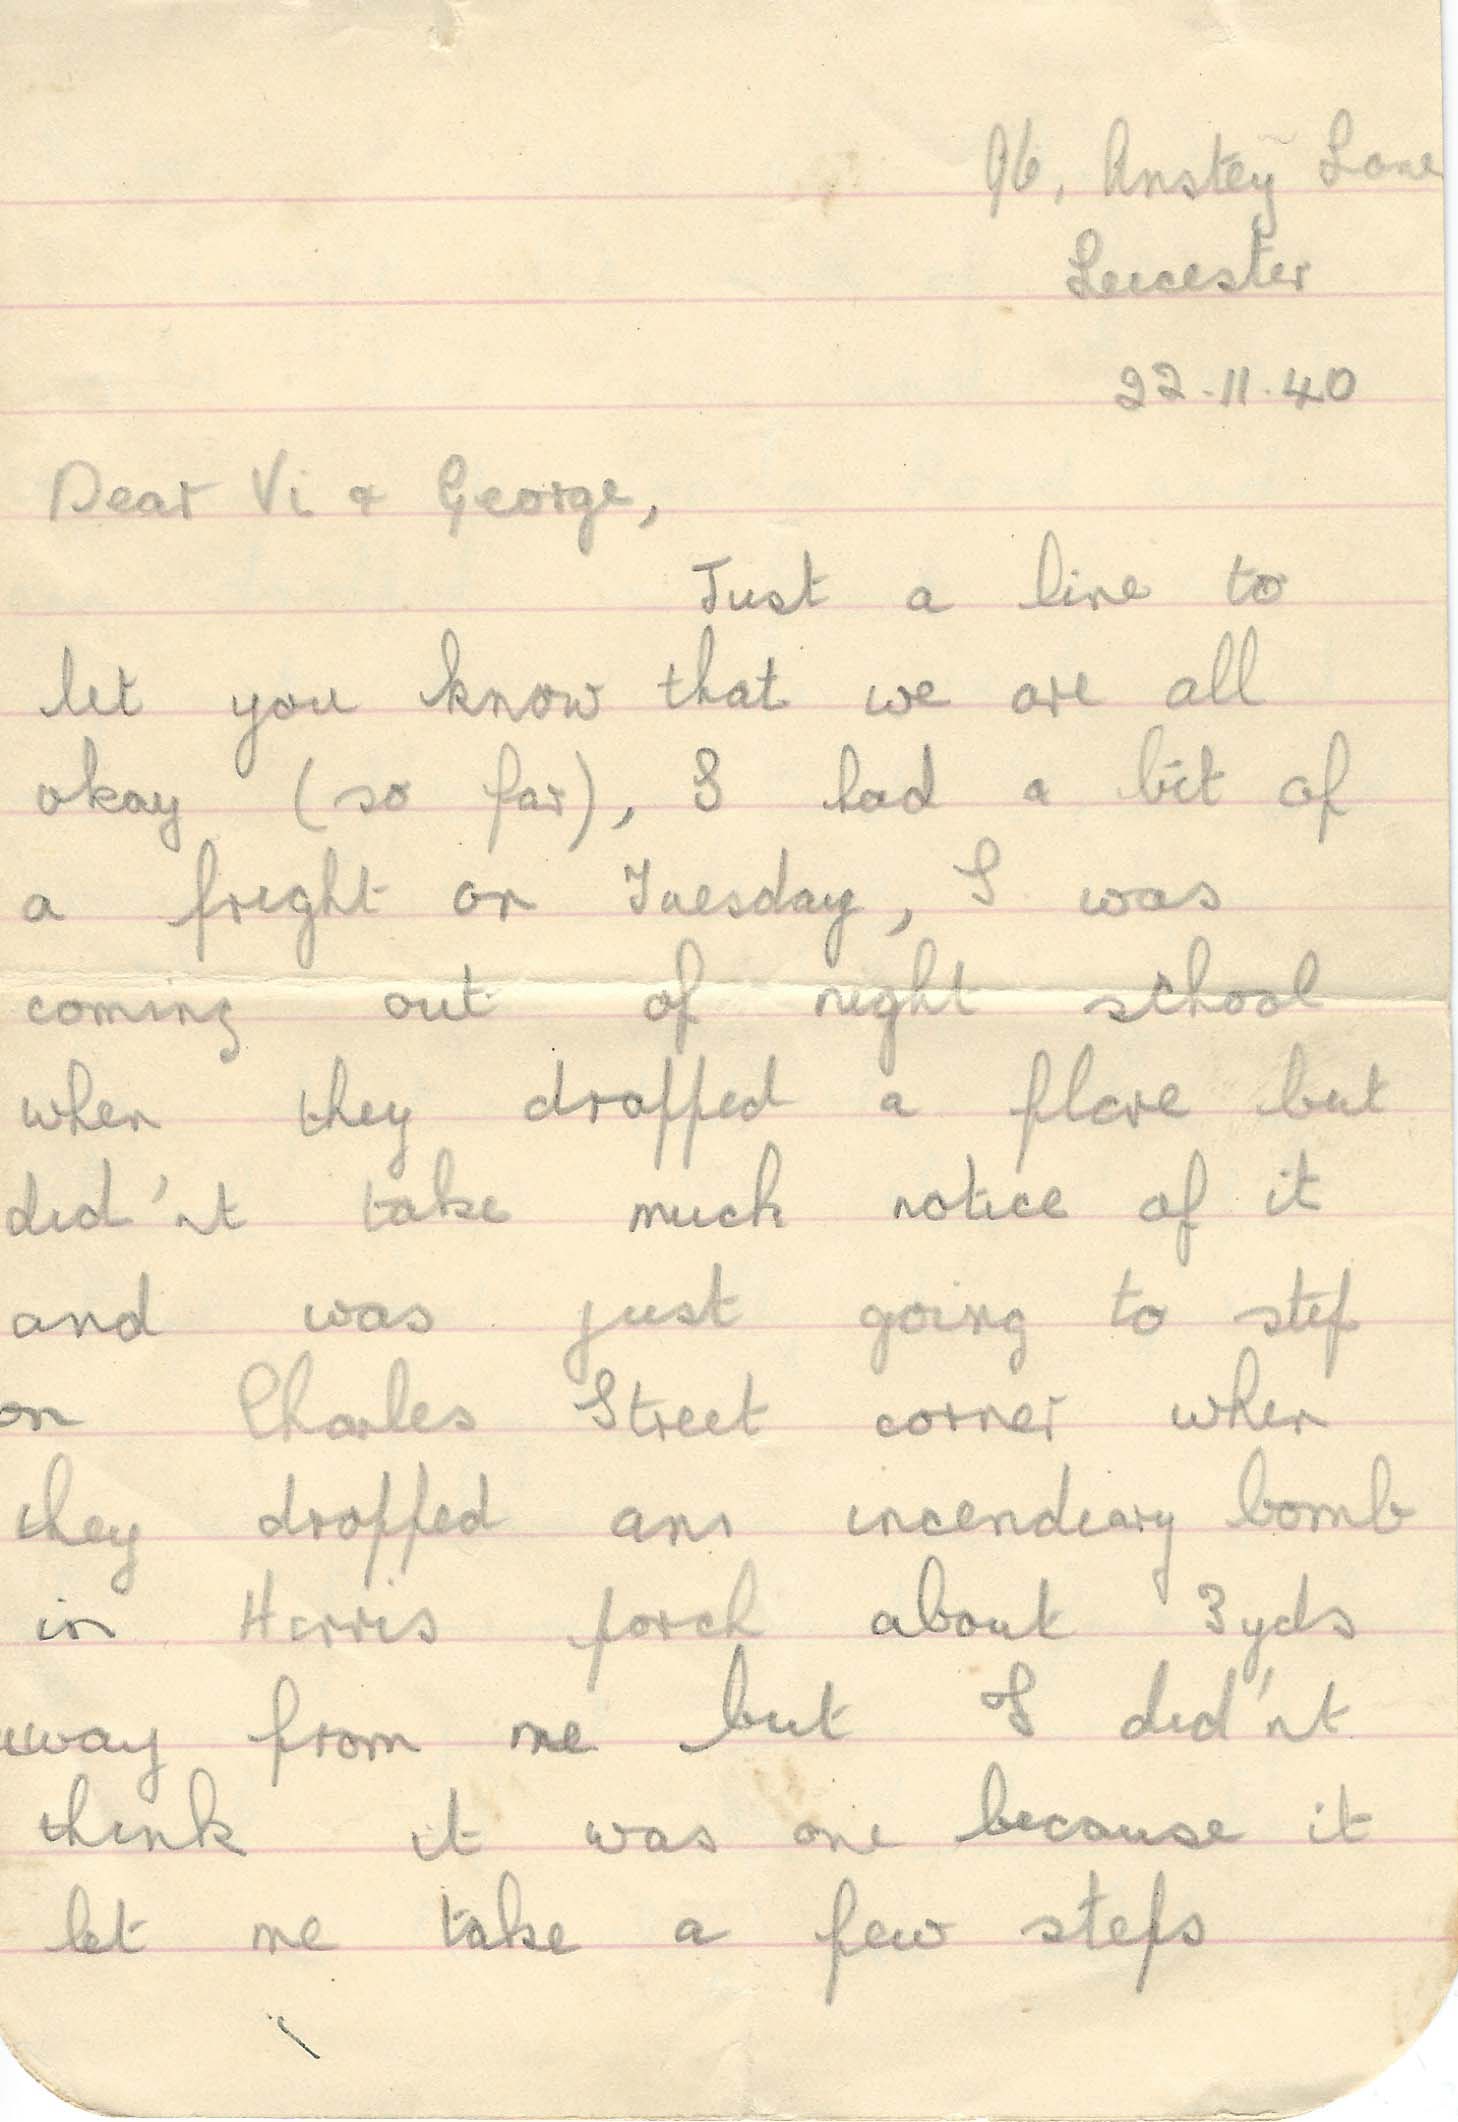 96, Anstey Lane
Leicester
22.11.40
Dear Vi & George,
Just a line to
let you know that we are all
okay (so far), I had a bit of
a fright on Tuesday, I was
coming out of night school
when they dropped a flare but
did'nt take much notice of it
and was just going to step
on Charles Street corner when
they dropped an incendiary bomb
in Harris porch about 3yds
away from me but I did'nt
think it was one because it
let me take a few steps